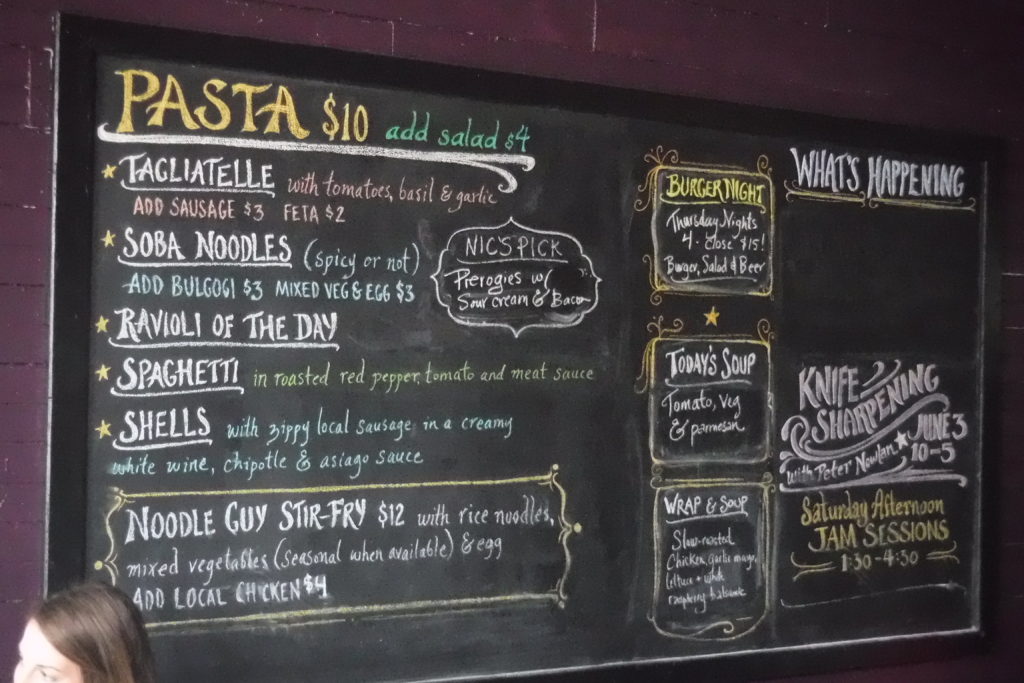 PASTA $10 add salad $4
TAGLIATELLE with tomatoes, basil & garlic
ADD SAUSAGE $3 FETA $2
SOBA NOODLES (spicy or not)
ADD BULGOGI $3 MIXED VEG & EGG $3
RAVIOLI OF THE DAY
SPAGHETTI in roasted red pepper, tomato and meat sauce
SHELLS with zippy local sausage in a creamy
white wine, chipotle & asiago sauce
NOODLE GUY STIR-FRY $12 with rice noodles,
mixed vegetables (seasonal when available) & egg
ADD LOCAL CHICKEN $4
NIC'S PICK
Pierogies w/
Sour cream & Bacon
BURGER NIGHT
Thursday Nights
4 - close $15!
Burger, Salad & Beer
TODAY'S SOUP
Tomato, Veg
& parmesan
WRAP & SOUP
Slow-roasted
Chicken, garlic mayo,
lettuce + white
raspberry balsamic
WHAT'S HAPPENING
KNIFE
SHARPENING
JUNE 3
10-5
with Peter Nowlan
Saturday Afternoon
JAM SESSIONS
1:30-4:30